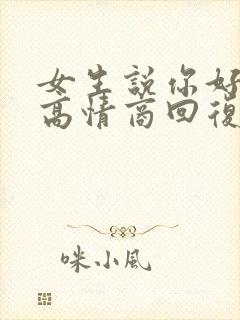 女生說你好
高情商回復
咪小風